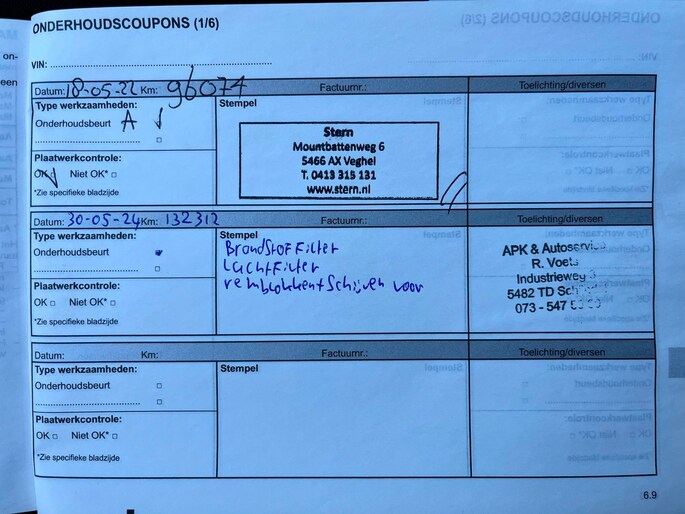 ONDERHOUDSCOUPONS (1/6)
VIN:
Datum: 18-05-22 Km: 96074 Factuurnr.: Toelichting/diversen
Type werkzaamheden:
Stempel
Onderhoudsbeurt A
Stern
Mountbattenweg 6
5466 AX Veghel
T. 0413 315 131
www.stern.nl
Plaatwerkcontrole:
OK Niet OK*
*Zie specifieke bladzijde
Datum: 30-05-24 Km: 132312 Factuurnr.: Toelichting/diversen
Type werkzaamheden:
Stempel
Onderhoudsbeurt
BrandstofFilter
LuchtFilter
remblokken en t Schijven voor
APK & Autoservice
R. Voets
Industrieweg
5482 TD
073 - 547
Plaatwerkcontrole:
OK Niet OK*
*Zie specifieke bladzijde
Datum: Km: Factuurnr.: Toelichting/diversen
Type werkzaamheden:
Stempel
Onderhoudsbeurt
Plaatwerkcontrole:
OK Niet OK*
*Zie specifieke bladzijde
6.9